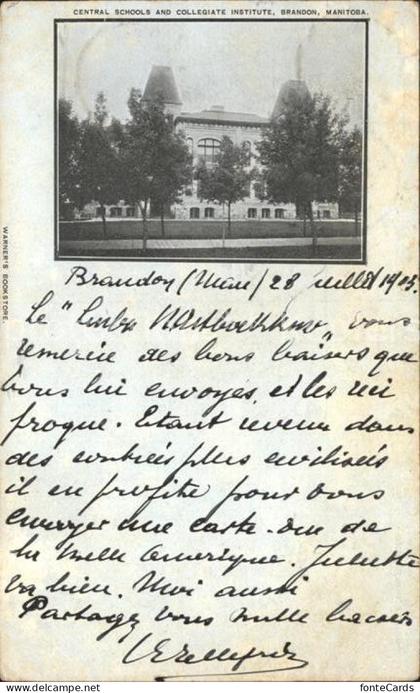 CENTRAL SCHOOLS AND COLLEGIATE INSTITUTE, BRANDON, MANITOBA.
WARNER'S BOOKSTORE.
Brandon (Man) 28 juillet 1905.
Le " vous
remercie des bons baisers que
vous lui envoyés, et les réci
proque. Etant revenu dans
des contrées plus civilisées
il en profite pour vous
envoyer une carte. vue de
la belle Amérique. Juliette
va bien. Moi aussi
Partagez vous mille baisers